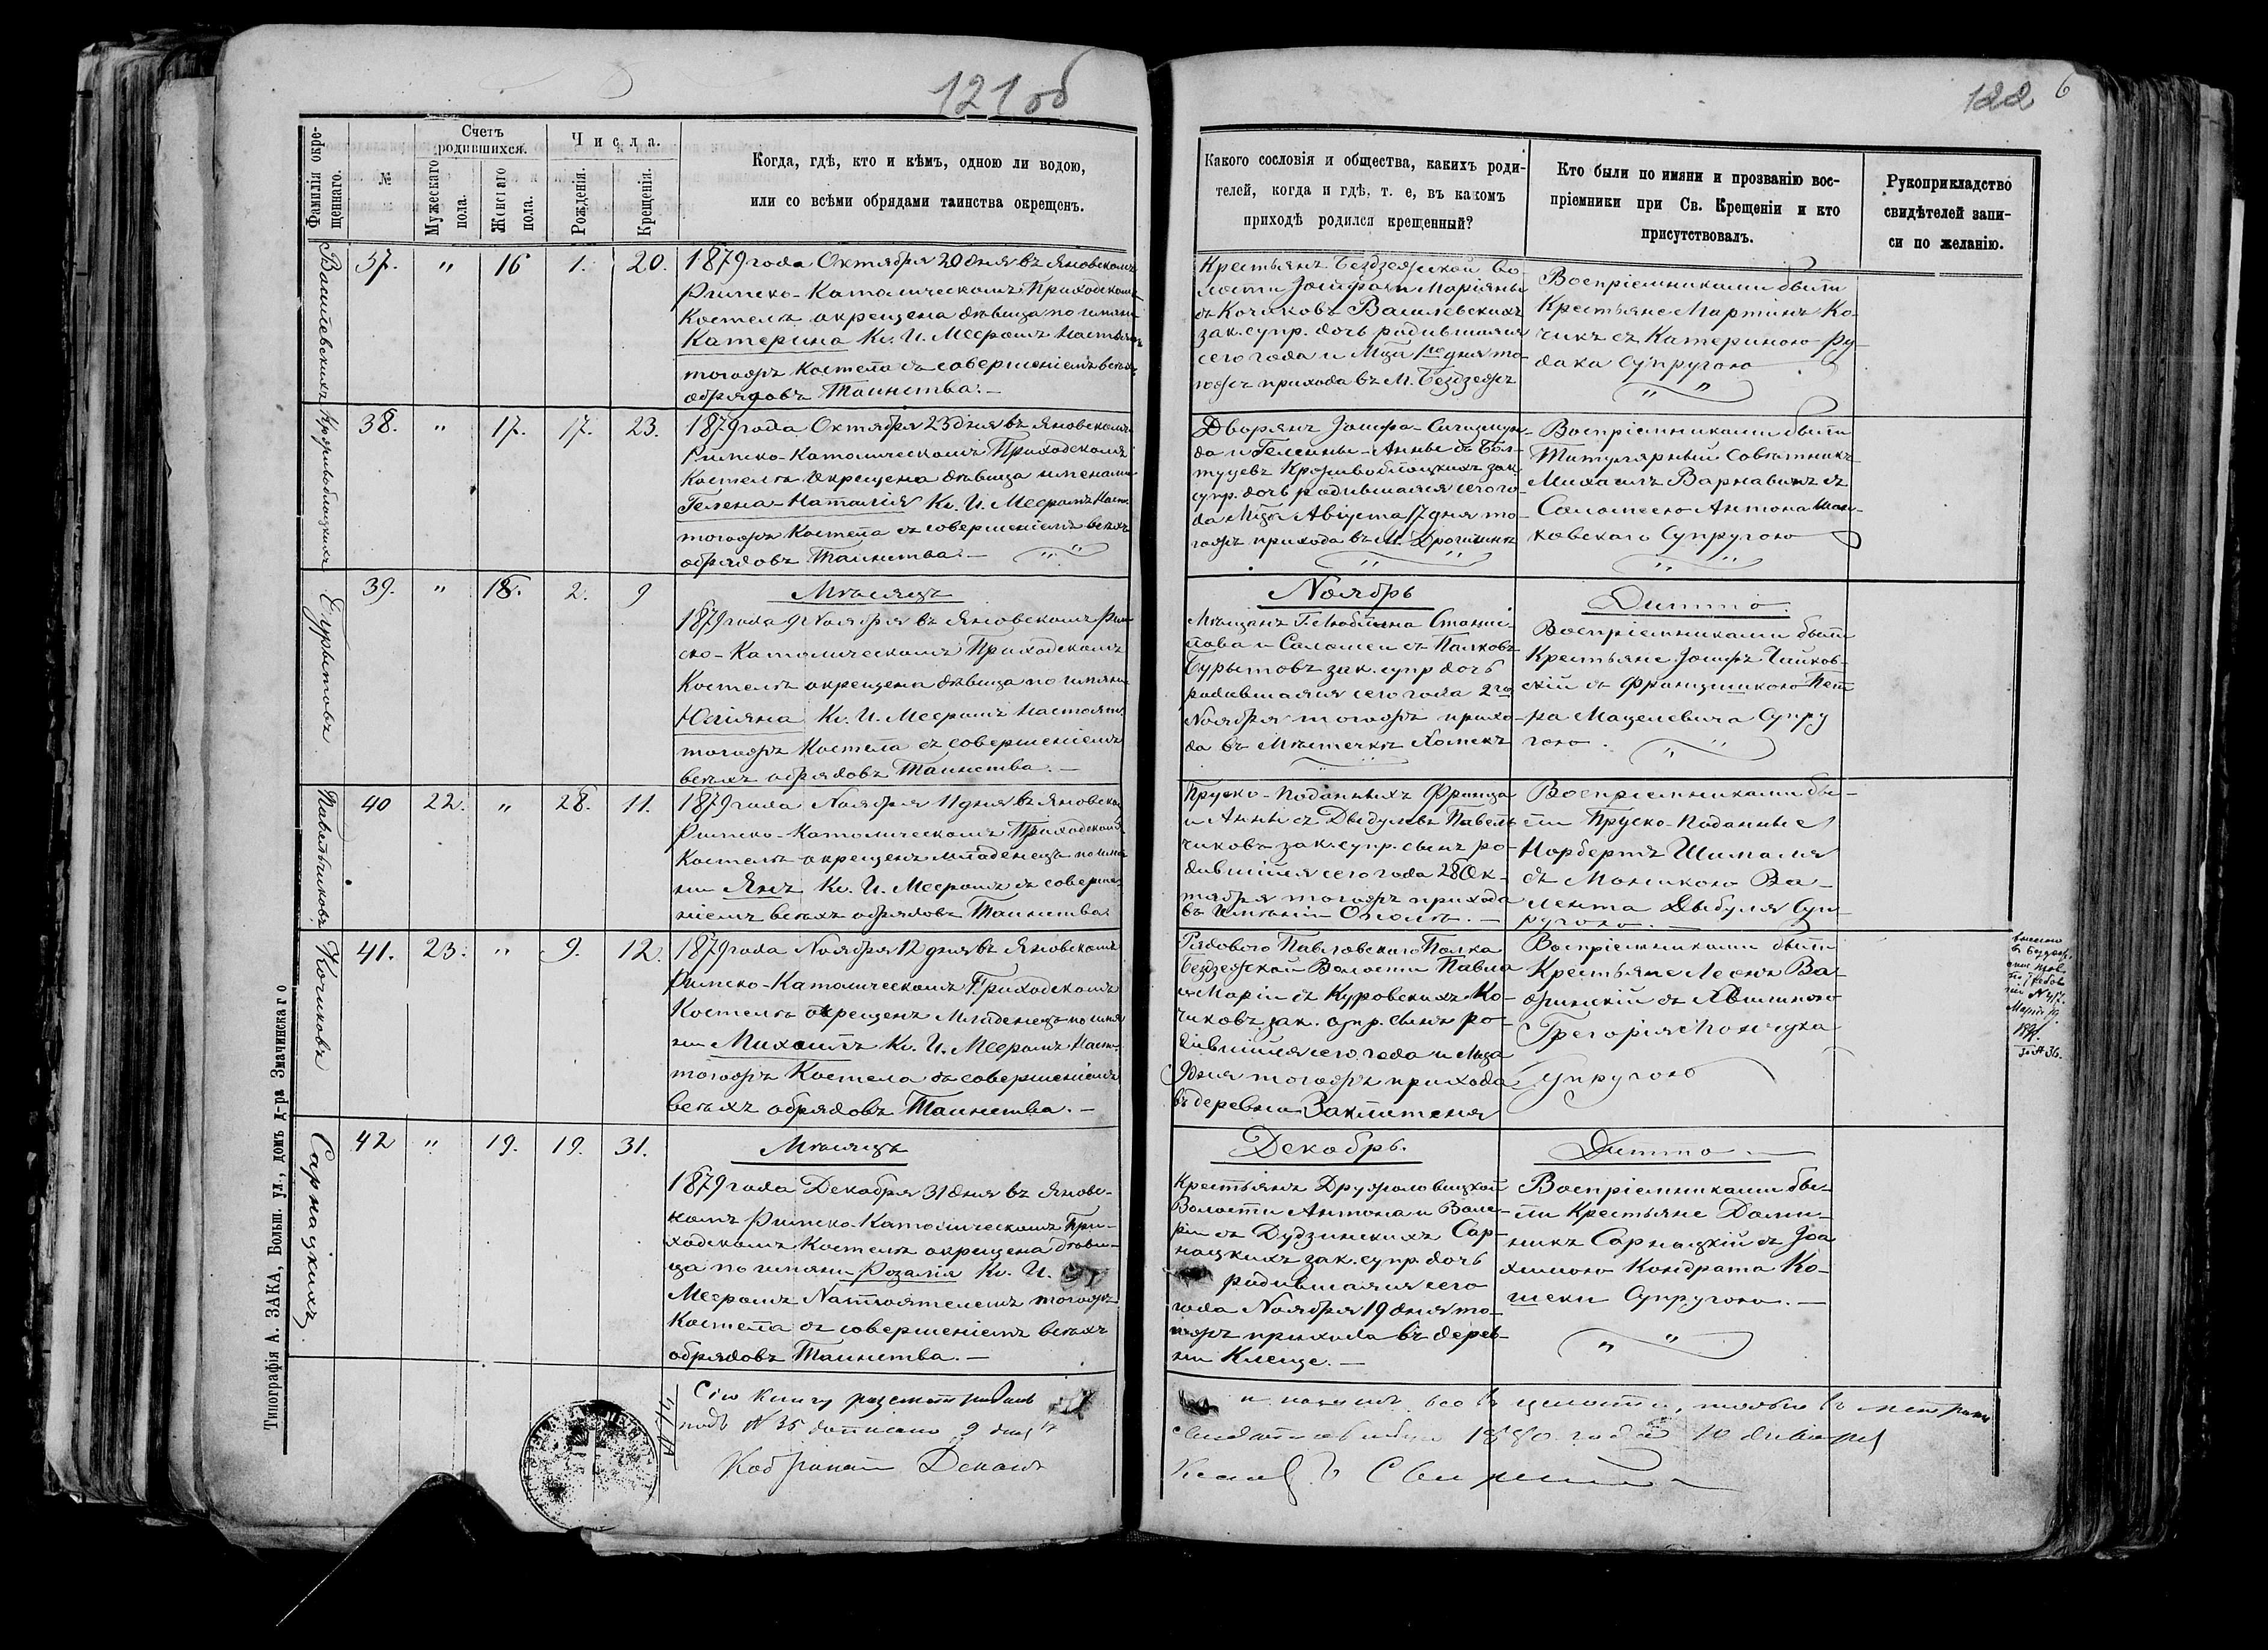 121 об
Фамилія окре-
щеннаго.
№
Счетъ
родившихся.
Мужескаго
пола.
Женскаго
пола.
Числа.
Рожденія.
Крещенія.
Когда, гдѣ, кто и кѣмъ, одною ли водою,
или со всѣми обрядами таинства окрещенъ.
Василевскихъ
37.
"
16
1.
20.
1879 года Октября 20 дня въ Яновскомъ
Римско-Католическомъ Приходскомъ
Костелѣ окрещена дѣвица по имени
Катерина Кс. И. Меерomъ Настоят.
тогожъ Костела съ совершеніемъ всѣхъ
обрядовъ Таинства. —
38.
"
17.
17.
23.
1879 года Октября 23 дня въ Яновскомъ
Римско-Католическомъ Приходскомъ
Костелѣ окрещена дѣвица именами
Гелена-Наталія Кс. И. Меерomъ Наст.
тогожъ Костела съ совершеніемъ всѣхъ
обрядовъ Таинства. — " "
39.
"
18.
2.
9
Мѣсяцъ
1879 года 9 Ноября въ Яновскомъ Рим
ско-Католическомъ Приходскомъ
Костелѣ окрещена дѣвица по имени
Юліяна Кс. И. Меерomъ Настоят.
тогожъ Костела съ совершеніемъ
всѣхъ обрядовъ Таинства. —
40
22.
"
28.
11.
1879 года Ноября 11 дня въ Яновском
Римско-Католическомъ Приходскомъ
Костелѣ окрещенъ младенецъ по име
ни Янъ Кс. И. Меерomъ съ соверше
ніемъ всѣхъ обрядовъ Таинства
Кочиковъ
41.
23.
"
9.
12.
1879 года Ноября 12 дня въ Яновскомъ
Римско-Католическомъ Приходскомъ
Костелѣ окрещенъ Младенецъ по име
ни Михаилъ Кс. И. Меерomъ Наст.
тогожъ Костела съ совершеніемъ
всѣхъ обрядовъ Таинства. —
Сарнацкихъ.
42
"
19.
19.
31.
Мѣсяцъ
1879 года Декабря 31 дня въ Яновс-
комъ Римско-Католическомъ При-
ходскомъ Костелѣ окрещена дѣви-
ца по имени Розалія Кс. И.
Меерomъ Настоятелемъ тогожъ
Костела съ совершеніемъ всѣхъ
обрядовъ Таинства. —
Сію книгу
подъ № 35 дописано
Кобринскій Деканъ
Типографія А. ЗАКА, Больш. ул., домъ д-ра Змачинскаго
122
6
Какого сословія и общества, какихъ роди-
телей, когда и гдѣ, т. е, въ какомъ
приходѣ родился крещенный?
Кто были по имяни и прозванію вос-
пріемники при Св. Крещеніи и кто
присутствовалъ.
Рукоприкладство
свидѣтелей запи-
си по желанію.
Крестьянъ Бездзежской Во-
лости Іосифа и Маріяны
съ Кочиковъ Василевскихъ
зак. супр. дочь родившаяся
сего года и Мца 1го дня то-
гожъ прихода въ М. Бездзежъ
Воспріемниками были
Крестьяне Мартинъ Ко-
чикъ съ Катериною Ру-
дака Супругою
" "
Дворянъ Іосифа-Сигизмун-
да и Гелены-Анны съ Бол-
зак.
супр. дочь родившаяся сего го-
да Мца Августа 17 дня то-
гожъ прихода въ М. Дрогичинѣ
" "
Воспріемниками были
Титулярный Совѣтникъ
Михаилъ Варнавинъ съ
Саломеею Антона
Супругою
" "
Ноябрь
Мѣщанъ Г. Люблина Станис-
лава и Саломеи съ Палковъ
зак. супр. дочь
родившаяся сего года 2го
Ноября тогожъ прихо-
да въ Мѣстечкѣ Хомскъ
" "
Дитто
Воспріемниками были
Крестьяне Іосифъ Чайков-
скій съ Францишкою Пет
ра Мацелевича Супру
гою. " "
Пруско-Поданныхъ Франца
и Анны съ Дыбулевъ Павель
чиковъ зак. супр. сынъ ро-
дившійся сего года 28 Ок-
тября тогожъ прихода
въ Имѣніи Ополь. —
Воспріемниками бы-
ли Пруско-Поданные
Норбертъ Шималя
съ Моникою Ва-
лента Дыбуля Суп-
ругою. —
Рядового Павловскаго Полка
Бездзежской Волости Павла
и Маріи съ Куровскихъ Ко-
чиковъ зак. супр. сынъ ро-
дившійся сего года и Мца
9 дня тогожъ прихода
въ деревни Заклитенья
Воспріемниками были
Крестьяне Леонъ Ва-
Грегорія
Супругою
Декабрь.
Крестьянъ Дружиловицкой
Волости Антона и Вале-
ріи съ Дудзинскихъ Сар-
нацкихъ зак. супр. дочь
родившаяся сего
года Ноября 19 дня то-
гожъ прихода въ дерев-
ни Клеще. —
Дитто —
Воспріемниками бы-
ли Крестьяне Доми-
никъ Сарнацкій съ Іоа
химою Кондрата Ко-
Супругою. —
" "
1880 года 10 Января